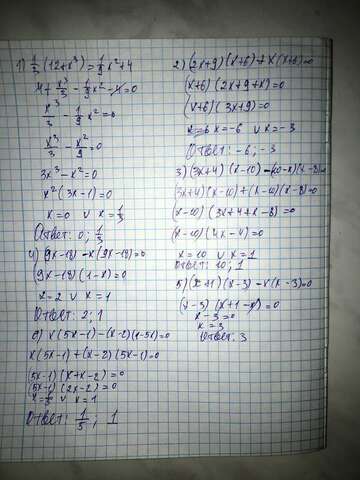 1) 1/3 (12+x³) = 1/9 x²+4
4+ x³/3 - 1/9 x² - 4 = 0
x³/3 - 1/9 x² = 0
x³/3 - x²/9 = 0
3x³ - x² = 0
x² (3x-1) = 0
x = 0 ∨ x = 1/3
Ответ: 0; 1/3
4) 9x-18 - x(9x-18)=0
(9x-18)(1-x)=0
x=2 ∨ x=1
Ответ: 2; 1
6) x(5x-1)-(x-2)(1-5x)=0
x(5x-1)+(x-2)(5x-1)=0
(5x-1)(x+x-2)=0
(5x-1)(2x-2)=0
x=1/5 ∨ x=1
Ответ: 1/5; 1
2) (2x+9)(x+6)+x(x+6)=0
(x+6)(2x+9+x)=0
(x+6)(3x+9)=0
x=-6 ∨ x=-3
Ответ: -6; -3
3) (3x+4)(x-10)-(10-x)(x-8)=0
(3x+4)(x-10)+(x-10)(x-8)=0
(x-10)(3x+4+x-8)=0
(x-10)(4x-4)=0
x=10 ∨ x=1
Ответ: 10; 1
5) (x+1)(x-3)-x(x-3)=0
(x-3)(x+1-x)=0
x-3=0
x=3
Ответ: 3